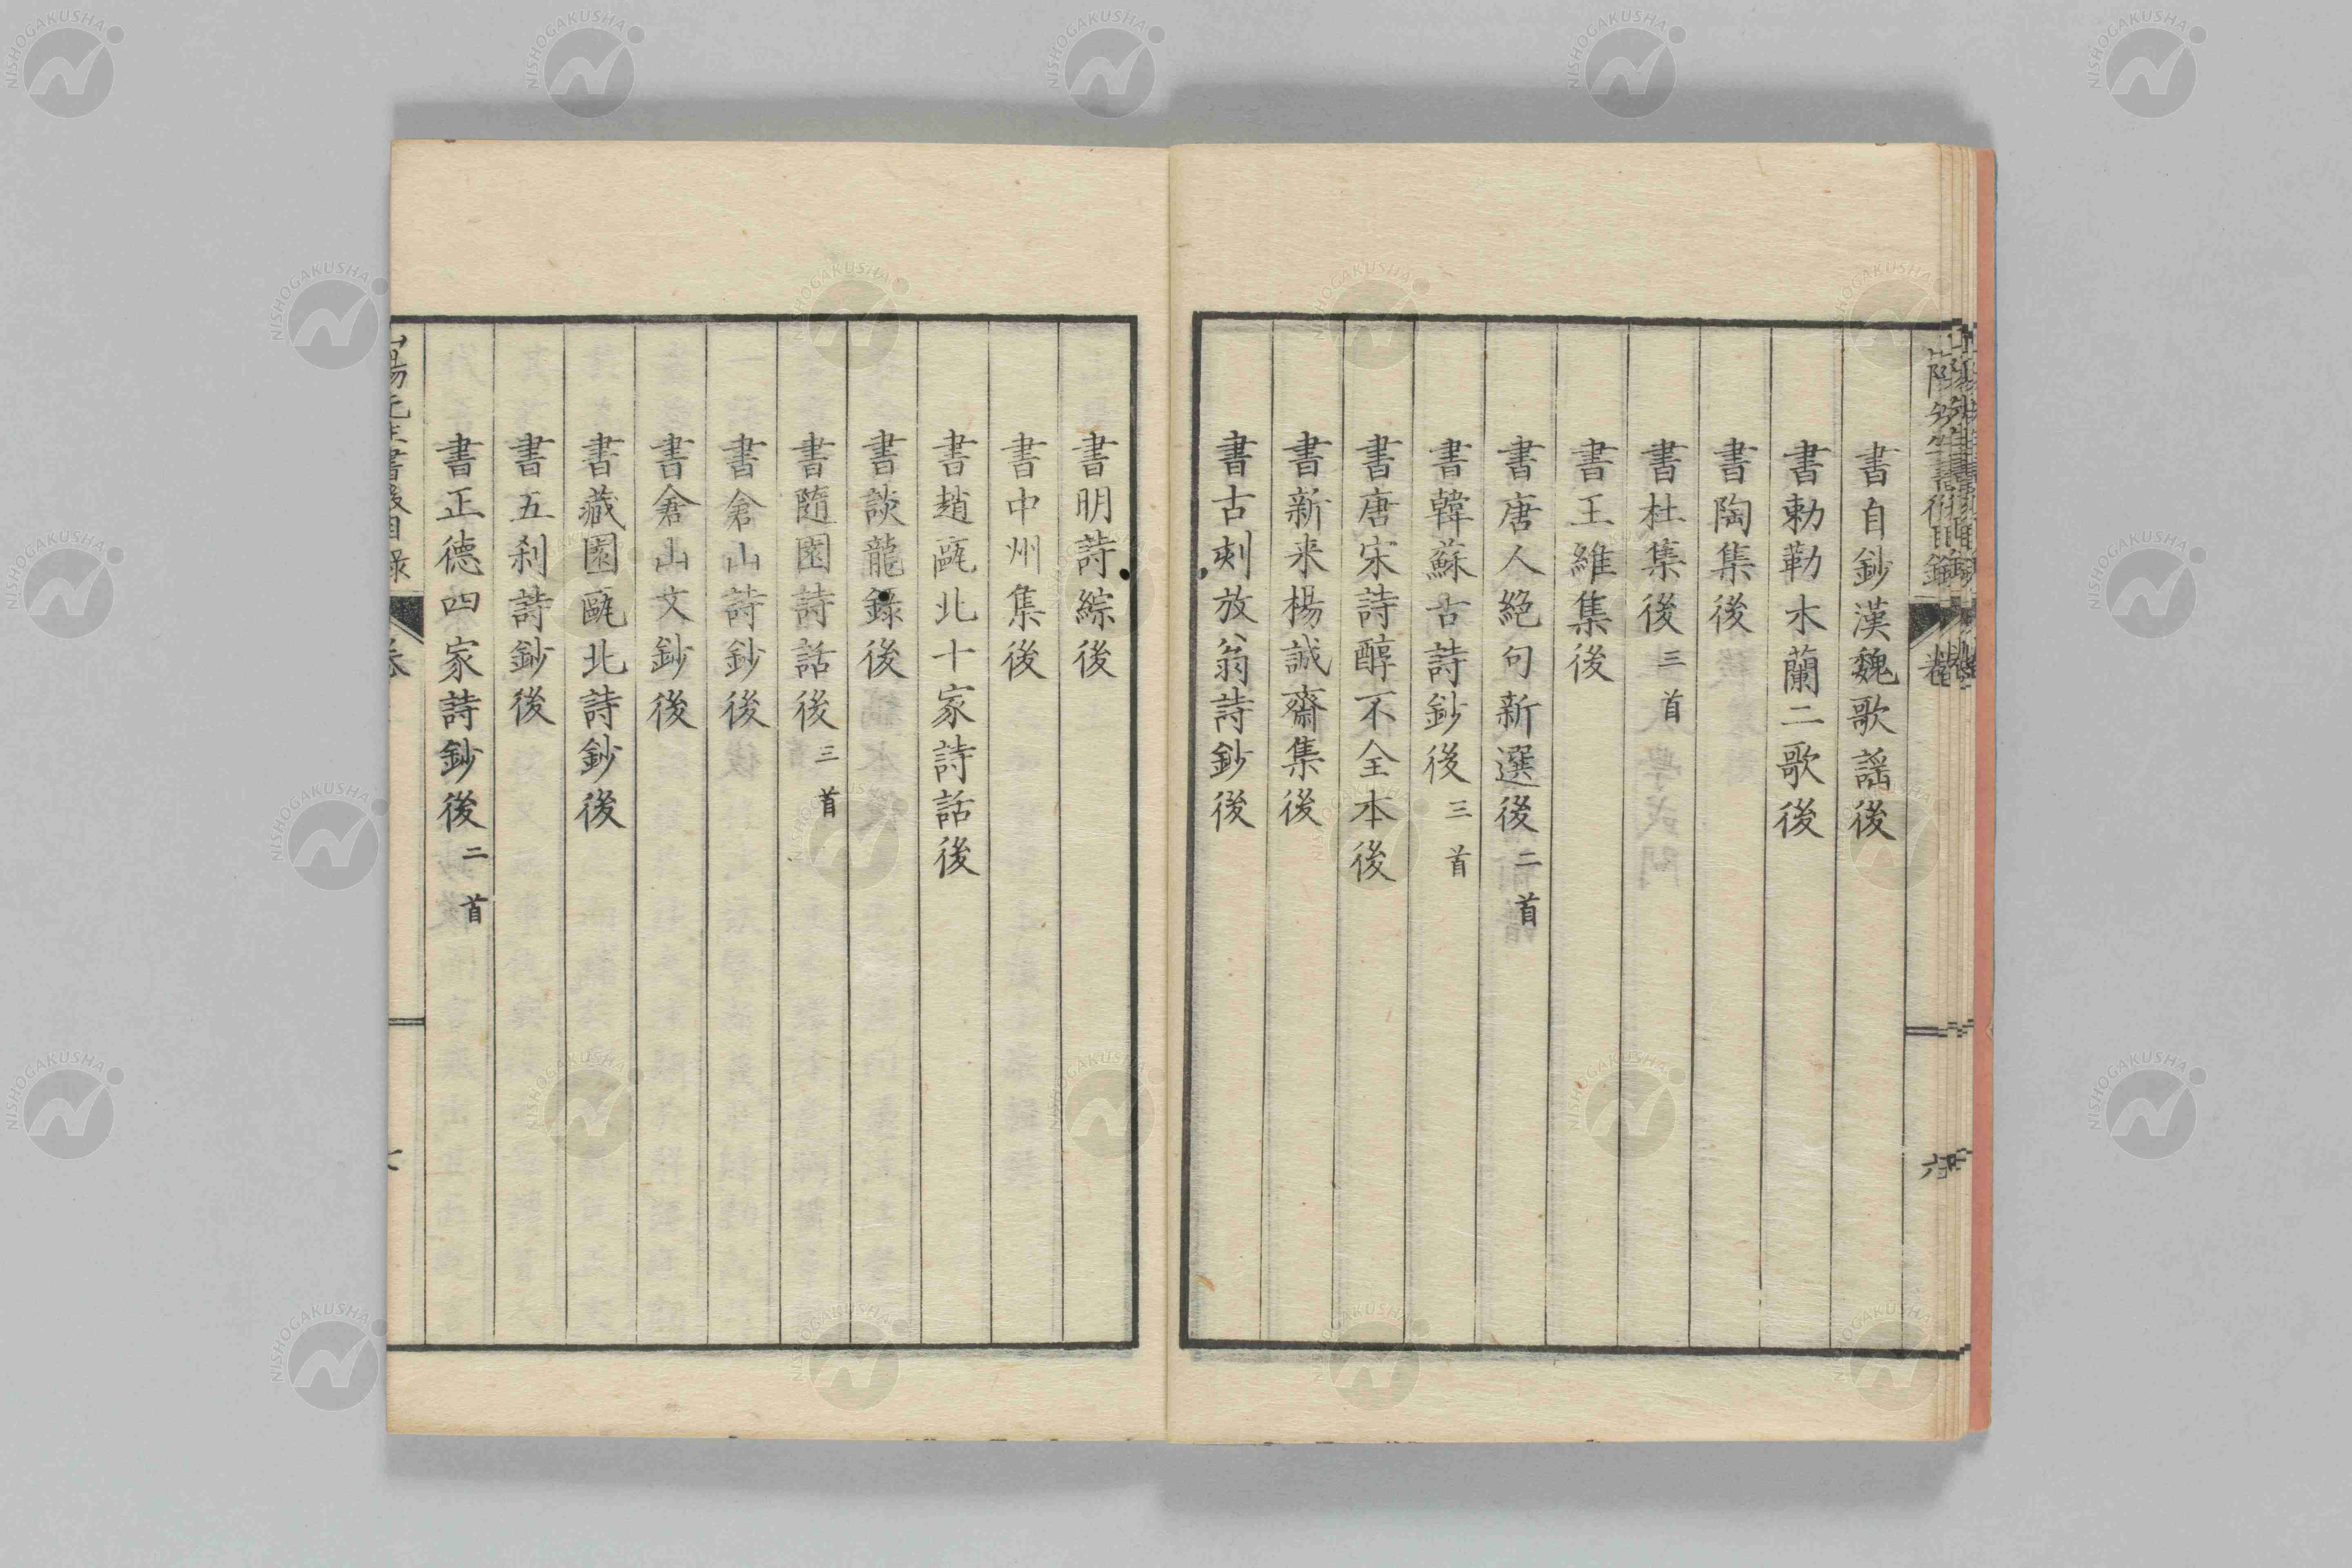 書自鈔漢魏歌謡後
書勅勒木蘭二歌後
書陶集後
書杜集後三首
書王維集後
書唐人絶句新選後二首
書韓蘇古詩鈔後三首
書唐宋詩醇不全本後
書新来楊誠齋集後
書古刻放翁詩鈔後
書明詩綜後
書中州集後
書趙甌北十家詩話後
書談龍錄後
書隨園詩話後三首
書倉山詩鈔後
書倉山文鈔後
書藏園甌北詩鈔後
書五刹詩鈔後
書正德四家詩鈔後二首
NISHOGAKUSHA